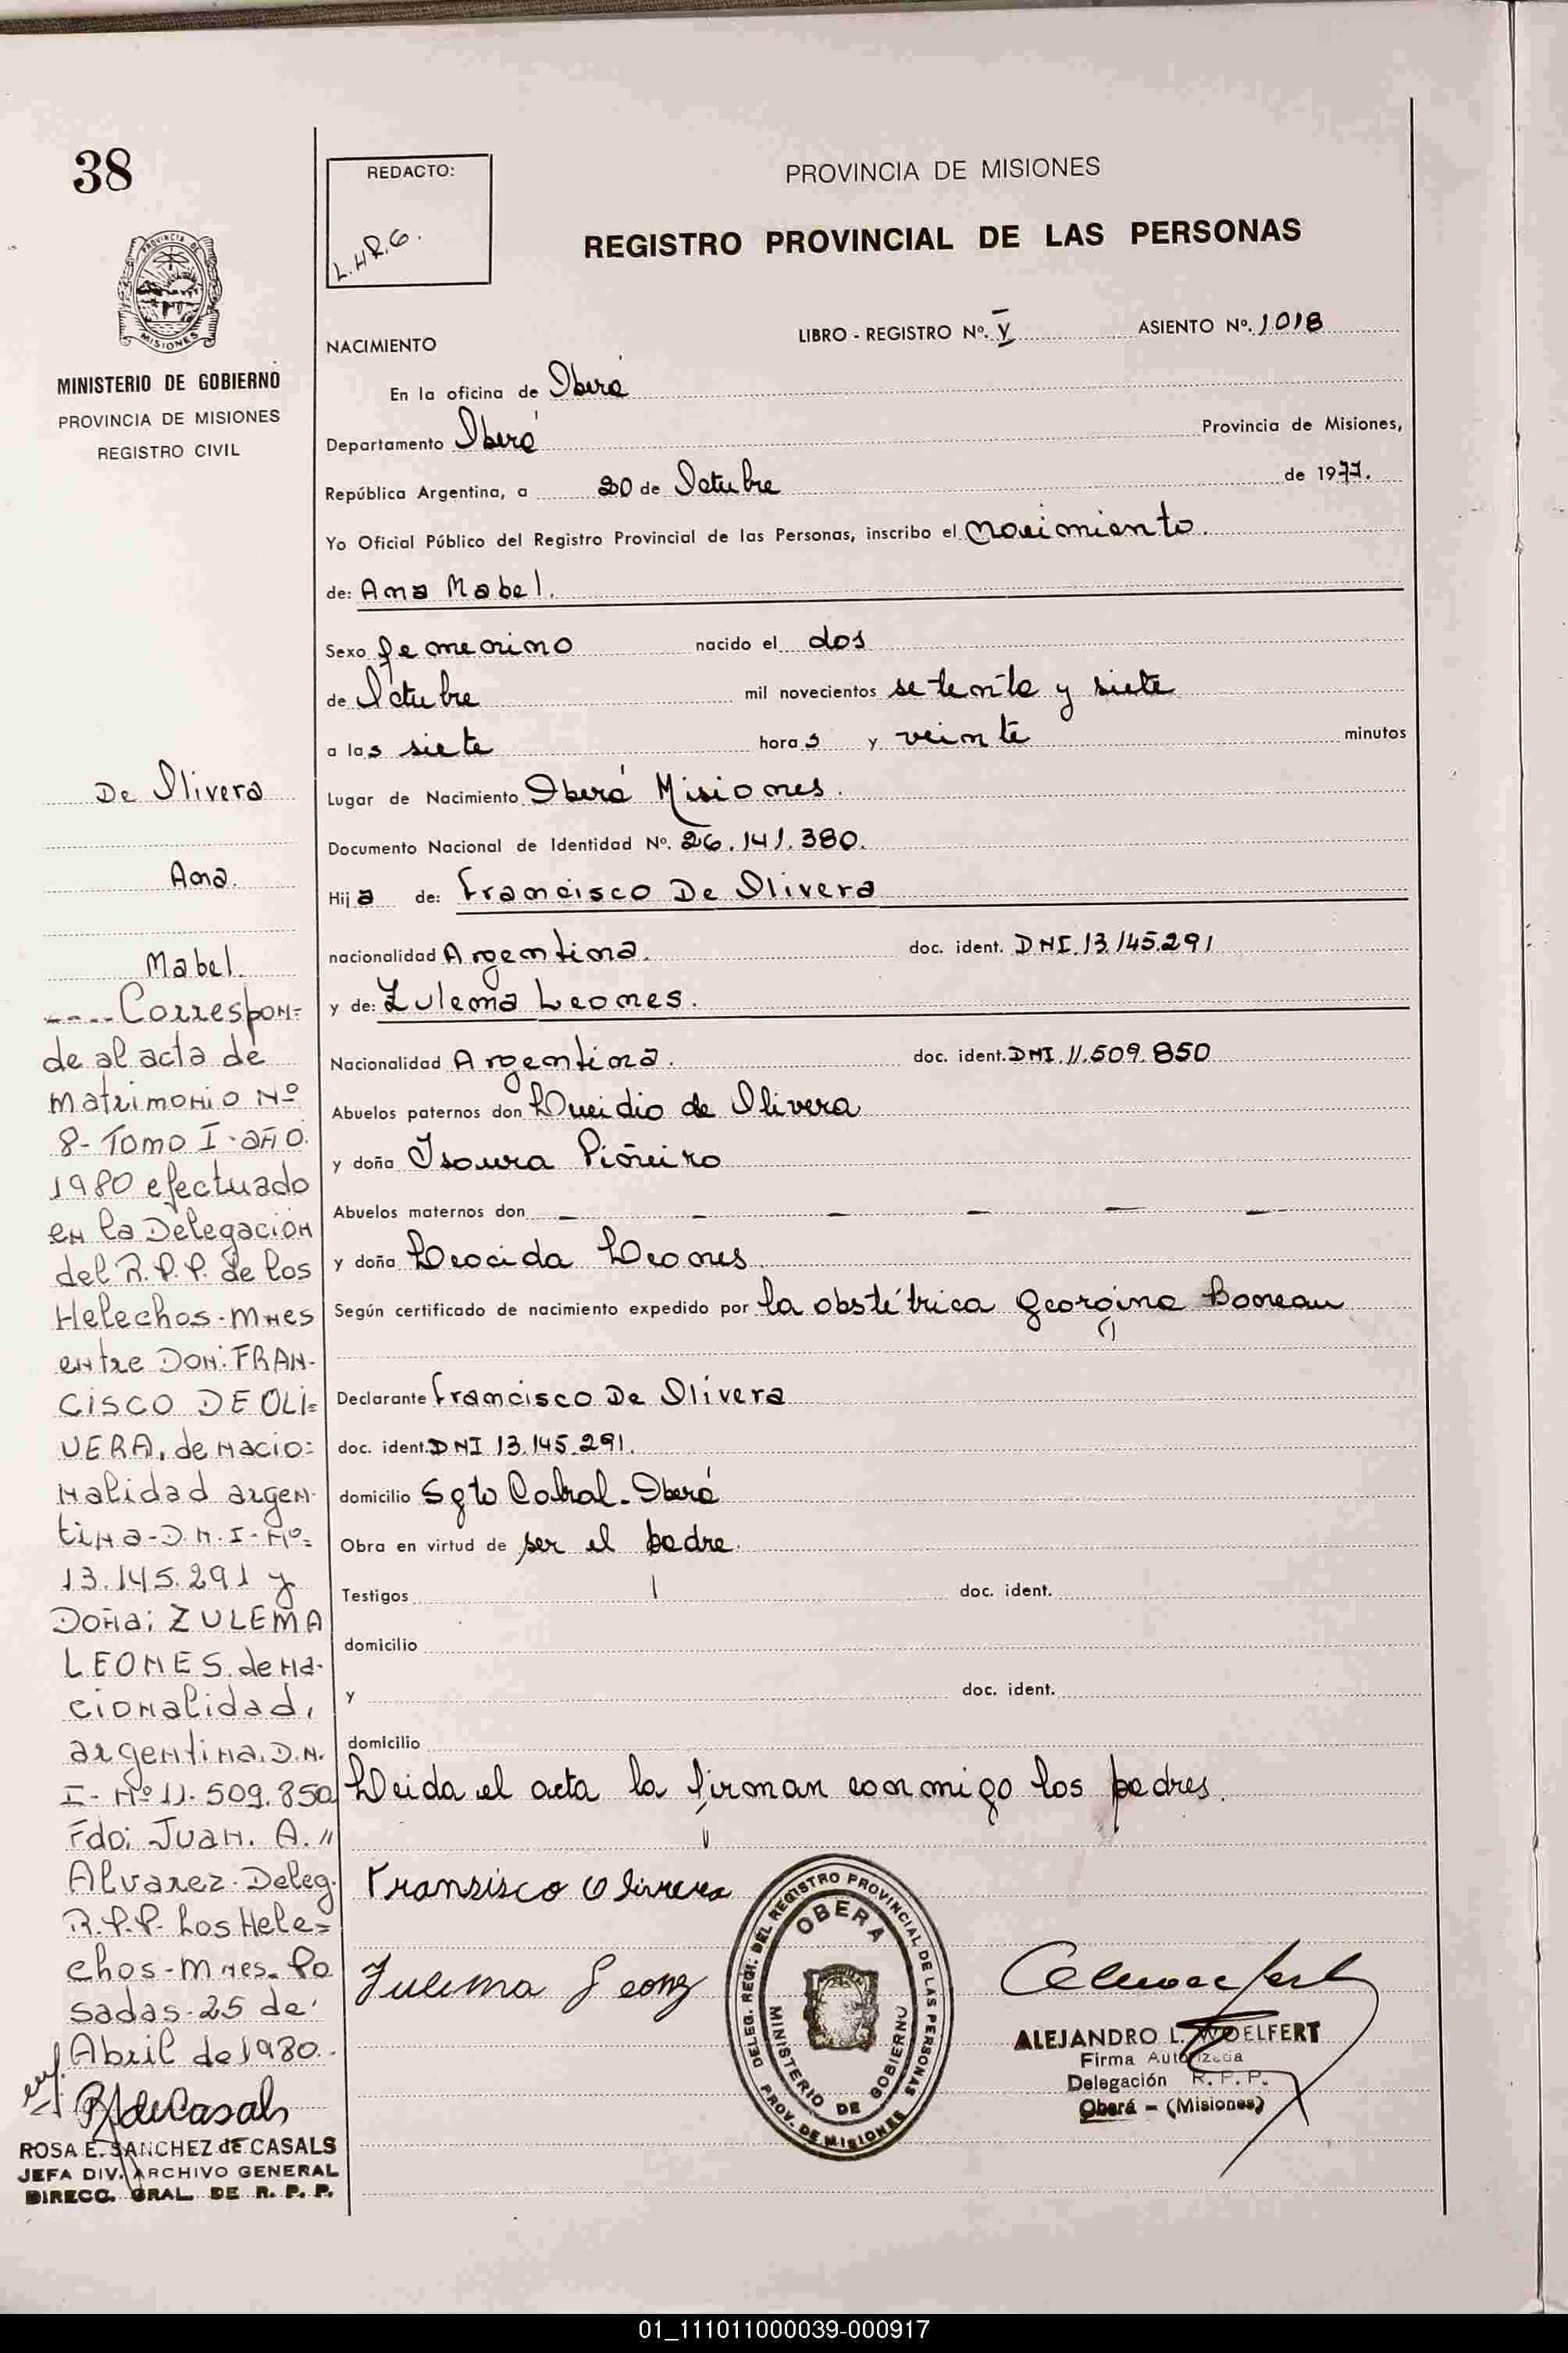 38
REDACTO:
L.H.R.G.
PROVINCIA DE MISIONES
REGISTRO PROVINCIAL DE LAS PERSONAS
PROVINCIA DE
MISIONES
MINISTERIO DE GOBIERNO
PROVINCIA DE MISIONES
REGISTRO CIVIL
LIBRO - REGISTRO Nº. V ASIENTO Nº. 1018
NACIMIENTO
En la oficina de Oberá
Departamento Oberá Provincia de Misiones,
República Argentina, a 20 de Octubre de 1977.
Yo Oficial Público del Registro Provincial de las Personas, inscribo el nacimiento.
de: Ana Mabel.
Sexo femenino nacido el dos
de Octubre mil novecientos setenta y siete
a las siete horas y veinte minutos
Lugar de Nacimiento Oberá Misiones.
Documento Nacional de Identidad Nº. 26.141.380.
Hija de: Francisco De Olivera
nacionalidad Argentina. doc. ident. DNI.13.145.291
y de: Zulema Leones.
Nacionalidad Argentina. doc. ident. DNI.11.509.850
Abuelos paternos don de Olivera
y doña Isaura Piñeiro
Abuelos maternos don — — — — — —
y doña Leocida Leones
Según certificado de nacimiento expedido por la obstétrica Georgina
Declarante Francisco De Olivera
doc. ident. DNI 13.145.291.
domicilio Sgto Cabral - Oberá
Obra en virtud de ser el padre.
Testigos doc. ident.
domicilio
y doc. ident.
domicilio
Leida el acta la firman conmigo los padres.
Fransisco Olivera
Zulema
DELEG. REGI. DEL REGISTRO PROVINCIAL DE LAS PERSONAS
OBERA
MINISTERIO DE GOBIERNO
PROV. DE MISIONES
ALEJANDRO L. WOELFERT
Firma Autorizada
Delegación R. P. P.
Oberá - (Misiones)
De Olivera
Ana.
Mabel.
---- Correspon=
de al acta de
matrimonio Nº
8- Tomo I - año
1980 efectuado
en la Delegación
del R.P.P. de los
Helechos - Mnes
entre Don: FRAN-
CISCO DE OLI=
VERA, de nacio=
nalidad argen-
tina - D.N.I - Nº=
13.145.291 y
Doña: ZULEMA
LEONES. de na-
cionalidad,
argentina. D.N.
I - Nº 11.509.850
Fdo: Juan. A. //
Alvarez - Deleg.
R.P.P. Los Hele=
chos - Mnes. Po
sadas - 25 de
Abril de 1980.
R S de Casals
ROSA E. SANCHEZ de CASALS
JEFA DIV. ARCHIVO GENERAL
DIRECC. GRAL. DE R. P. P.
01_111011000039-000917